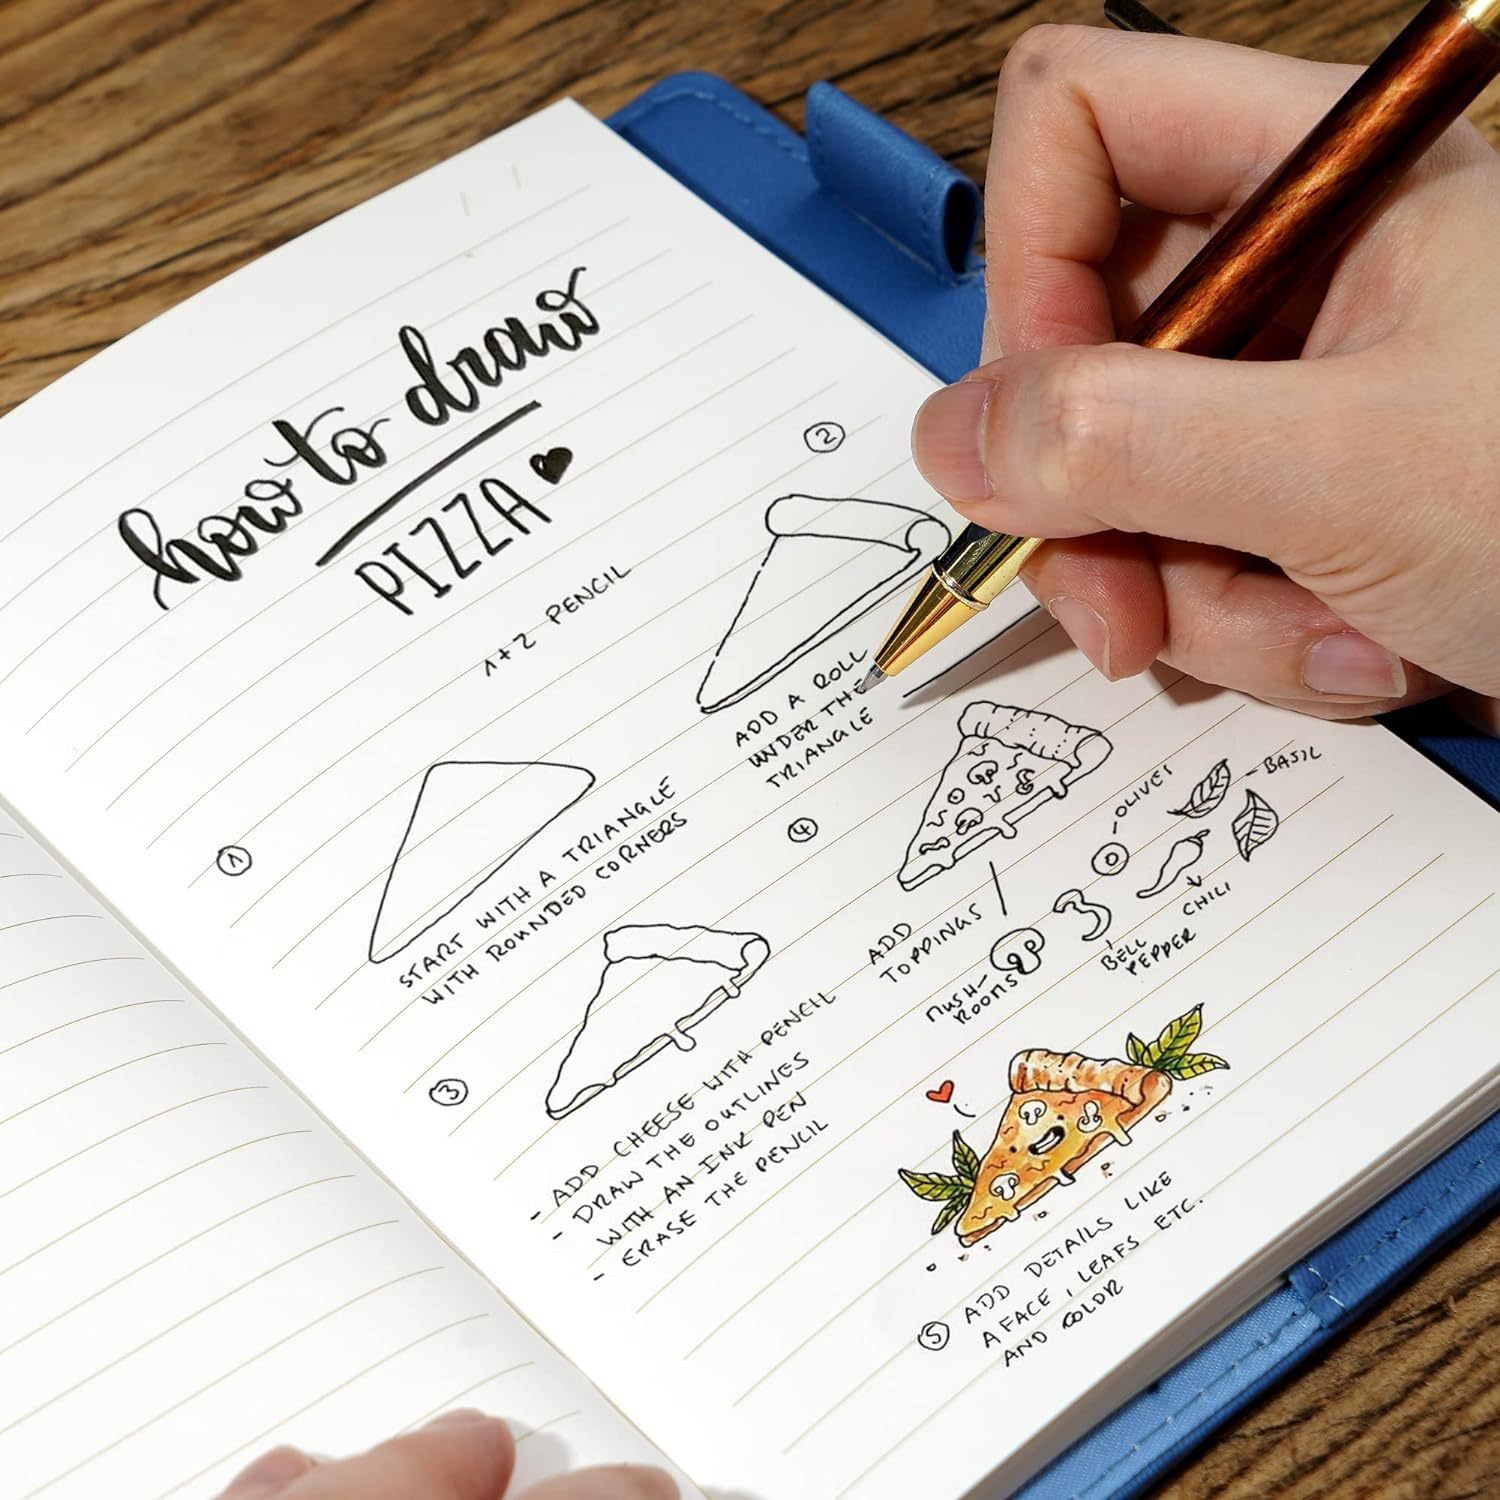 how to draw
PIZZA
1+2 PENCIL
1
START WITH A TRIANGLE
WITH ROUNDED CORNERS
2
ADD A ROLL
UNDER THE
TRIANGLE
3
- ADD CHEESE WITH PENCIL
- DRAW THE OUTLINES
WITH AN INK PEN
- ERASE THE PENCIL
4
ADD
TOPPINGS
MUSH-
ROOMS
BELL
PEPPER
CHILI
- OLIVES
- BASIL
5 ADD DETAILS LIKE
A FACE, LEAFS ETC.
AND COLOR